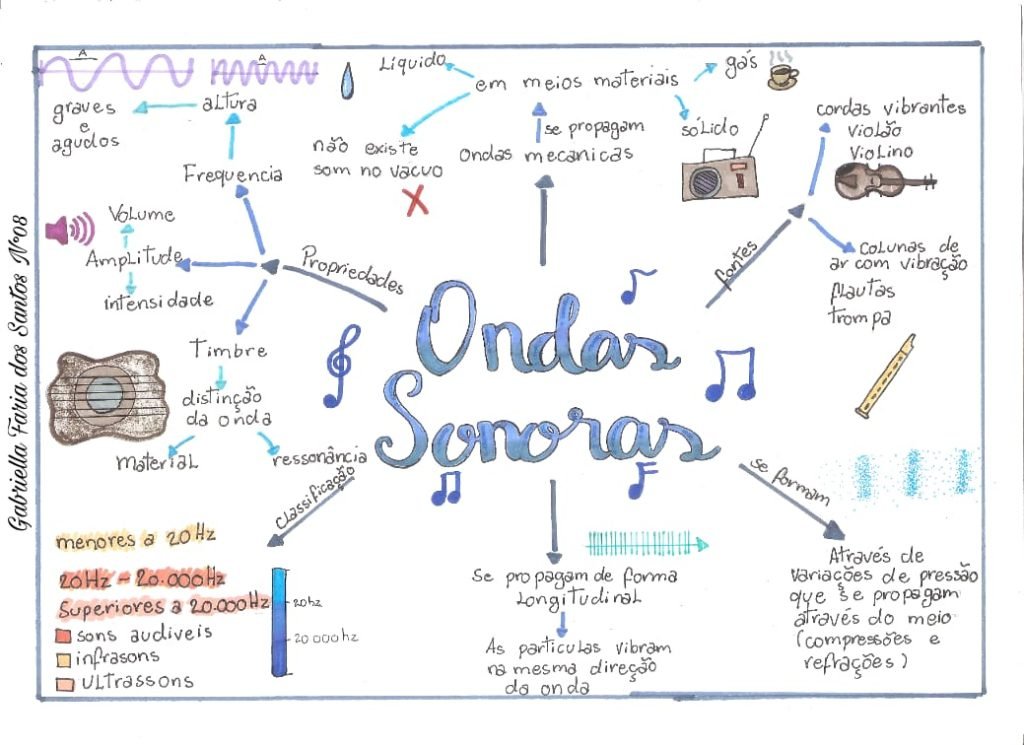 Gabriella Faria dos Santos Nº08
A
A
graves
e
agudos
altura
Frequencia
Volume
Amplitude
intensidade
Propriedades
Timbre
distinção
da onda
material
ressonância
Líquido
em meios materiais
gás
sólido
não existe
som no vacuo
se propagam
Ondas mecanicas
fontes
cordas vibrantes
violão
violino
colunas de
ar com vibração
flautas
trompa
Ondas
Sonoras
classificação
menores a 20Hz
20Hz - 20.000Hz
Superiores a 20.000Hz
sons audiveis
infrasons
ultrassons
20hz
20 000 hz
Se propagam de forma
longitudinal
As particulas vibram
na mesma direção
da onda
se formam
Através de
variações de pressão
que se propagam
através do meio
(compressões e
refrações)